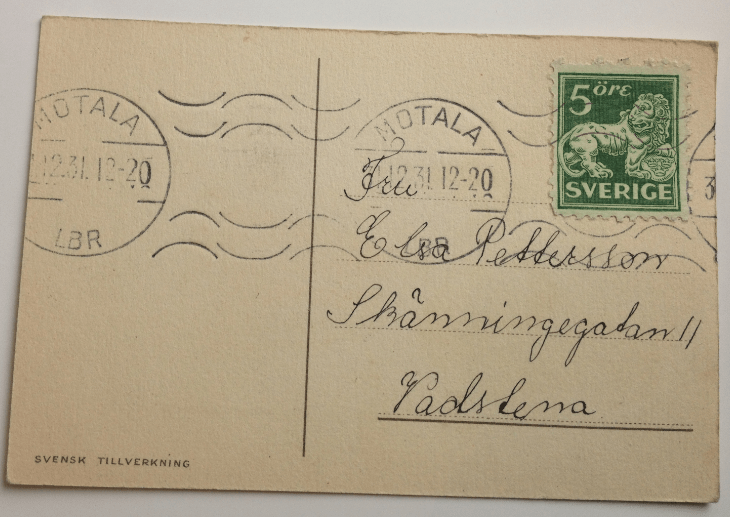 MOTALA
12.31.12-20
LBR
MOTALA
12.31.12-20
LBR
5 öre
SVERIGE
Fru
Elsa Pettersson
Skänningegatan 11
Vadstena
SVENSK TILLVERKNING